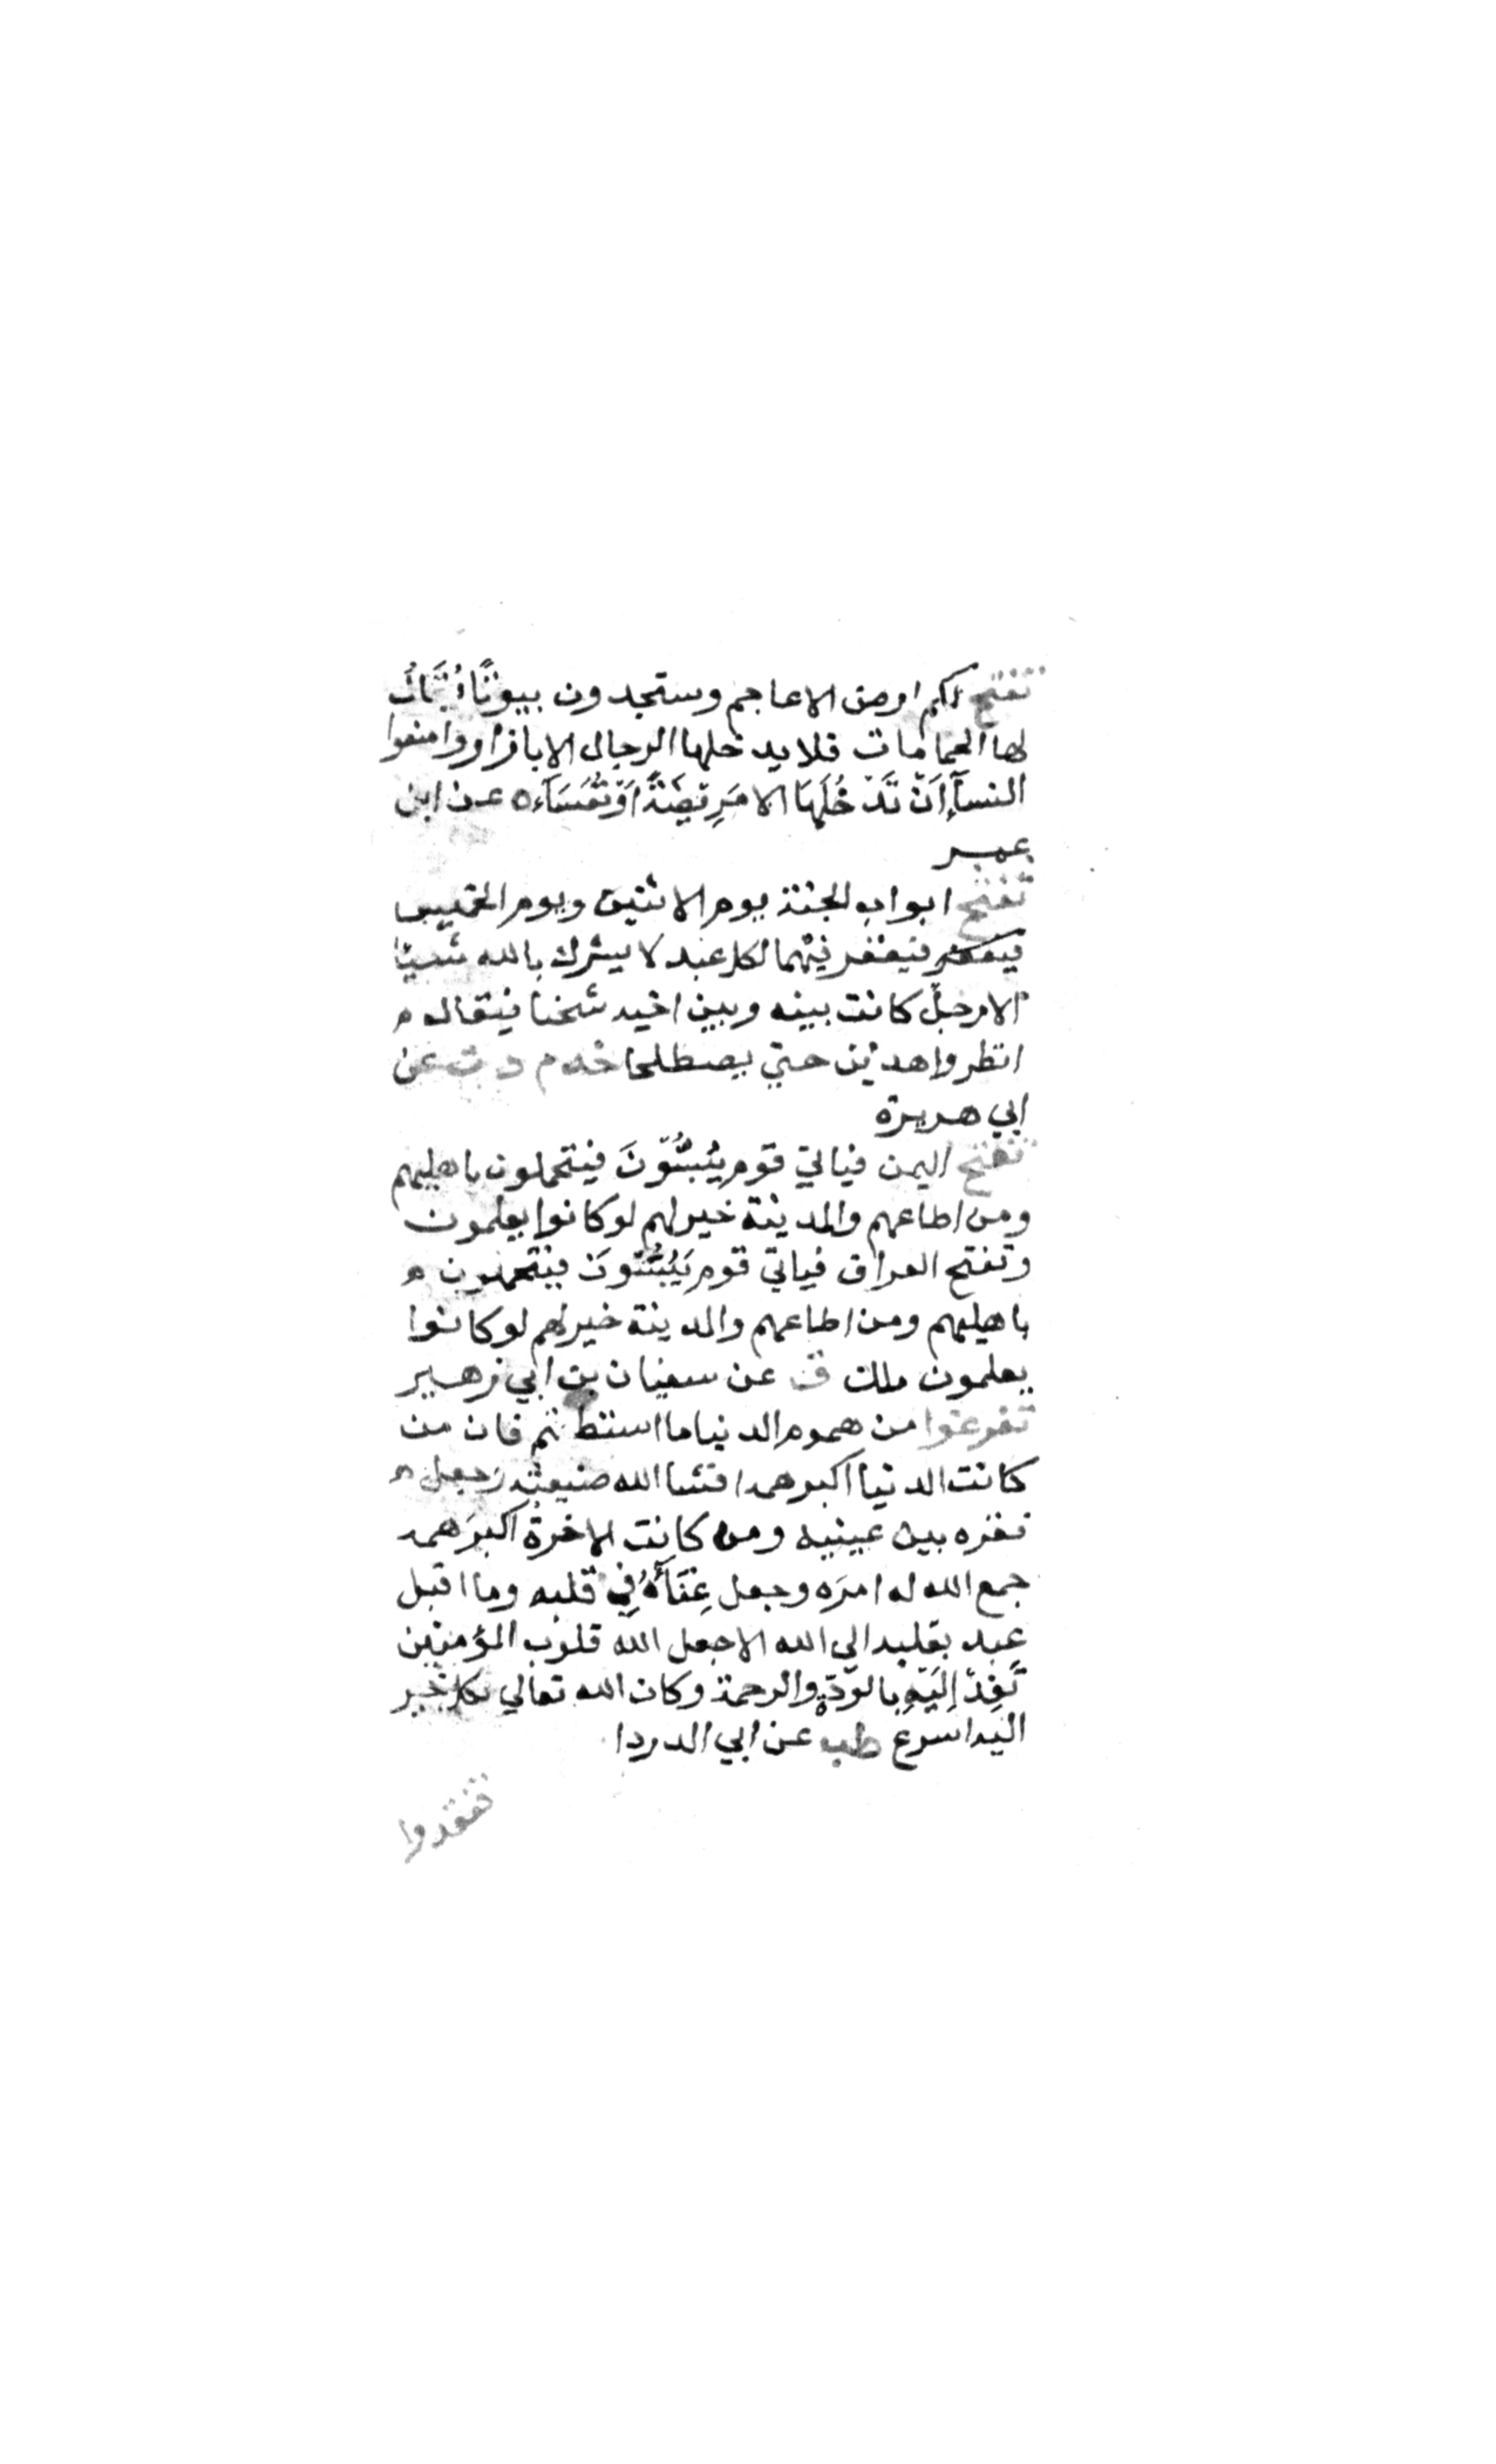 تفتح لكم ارض الاعاجم وستجدون بيوتًا يُقَالُ
لها الحمامات فلا يدخلها الرجال الا بازار وامنعوا
النسآءِ اَنْ تَدْخُلَهَا الا مَرِيضَةً اَوْ نُفَسَآء ه عن ابن
عمر
تفتح ابواب الجنة يوم الاثنين ويوم الخميس
فيغفر فيهما لكل عبد لا يشرك بالله شيئا
الا رجل كانت بينه وبين اخيه شحنا فيقال
انظروا هذين حتي يصطلحا خد م د ت عن
ابي هريرة
تفتح اليمن فياتي قوم يَبُسُّونَ فيتحملون باهليهم
ومن اطاعهم والمدينة خير لهم لو كانوا يعلمون
وتفتح العراق فياتي قوم يَبُسُّونَ فيتحملون
باهليهم ومن اطاعهم والمدينة خير لهم لو كانوا
يعلمون ملك ق عن سفيان بن ابي زهير
تفرغوا من هموم الدنيا ما استطتم فان من
كانت الدنيا اكبر همه افشا الله ضيعته وجعل
فقره بين عينيه ومن كانت الاخرة اكبرَ همه
جمع الله له امرَه وجعل غِنَآهُ فِي قلبه وما اقبل
عبد بقلبه الي الله الا جعل الله قلوب المؤمنين
تَفِدُ اِلَيْهِ بالودِّ والرحمة وكان الله تعالي بكل خير
اليه اسرَعَ طب عن ابي الدردا
تفقدوا